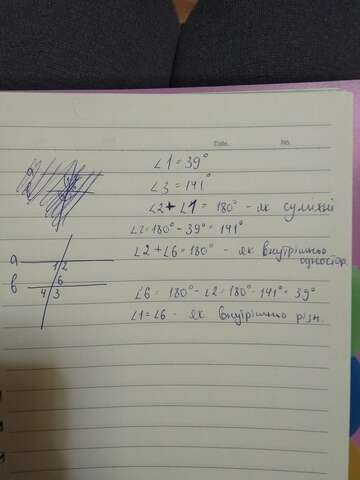 Date. No.
∠1 = 39°
∠3 = 141°
∠2 + ∠1 = 180° - як суміжні
∠2 = 180° - 39° = 141°
∠2 + ∠6 = 180° - як внутрішньо
одностор.
∠6 = 180° - ∠2 = 180° - 141° = 39°
∠1 = ∠6 - як внутрішньо різн.
a
1 2
b 6
4 3